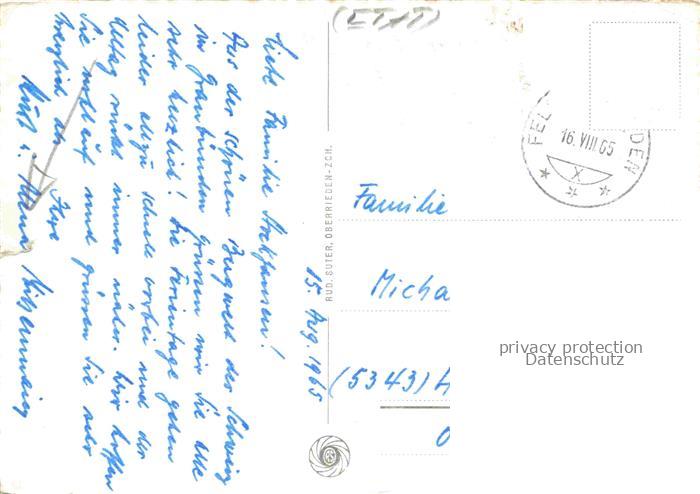 (ETAT)
15. Aug. 1965
Liebe Familie Stockhausen!
Aus der schönen Bergwelt der Schweiz
in Graubünden grüssen wir Sie alle
sehr herzlich! Die Ferientage gehen
leider allzu schnell vorbei und der
Alltag rückt immer näher. Wir hoffen
Sie wohlauf und grüssen Sie sehr
herzlich als Ihre
Kurt &
RUD. SUTER, OBERRIEDEN-ZCH.
FEL DEN
16. VIII 65
X
Familie
Micha
(5343) H
privacy protection
Datenschutz